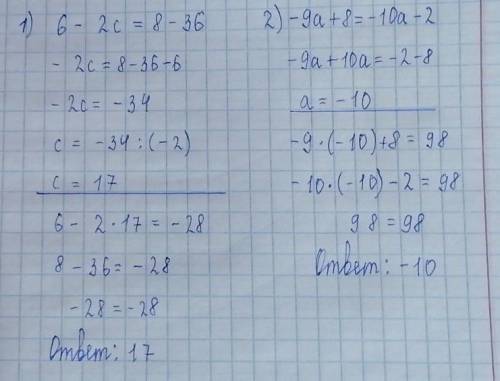 1) 6 - 2c = 8 - 36
- 2c = 8 - 36 - 6
- 2c = - 34
c = - 34 : (-2)
c = 17
6 - 2 · 17 = - 28
8 - 36 = - 28
- 28 = - 28
Ответ: 17
2) - 9a + 8 = - 10a - 2
- 9a + 10a = - 2 - 8
a = - 10
- 9 · (- 10) + 8 = 98
- 10 · (- 10) - 2 = 98
98 = 98
Ответ: - 10